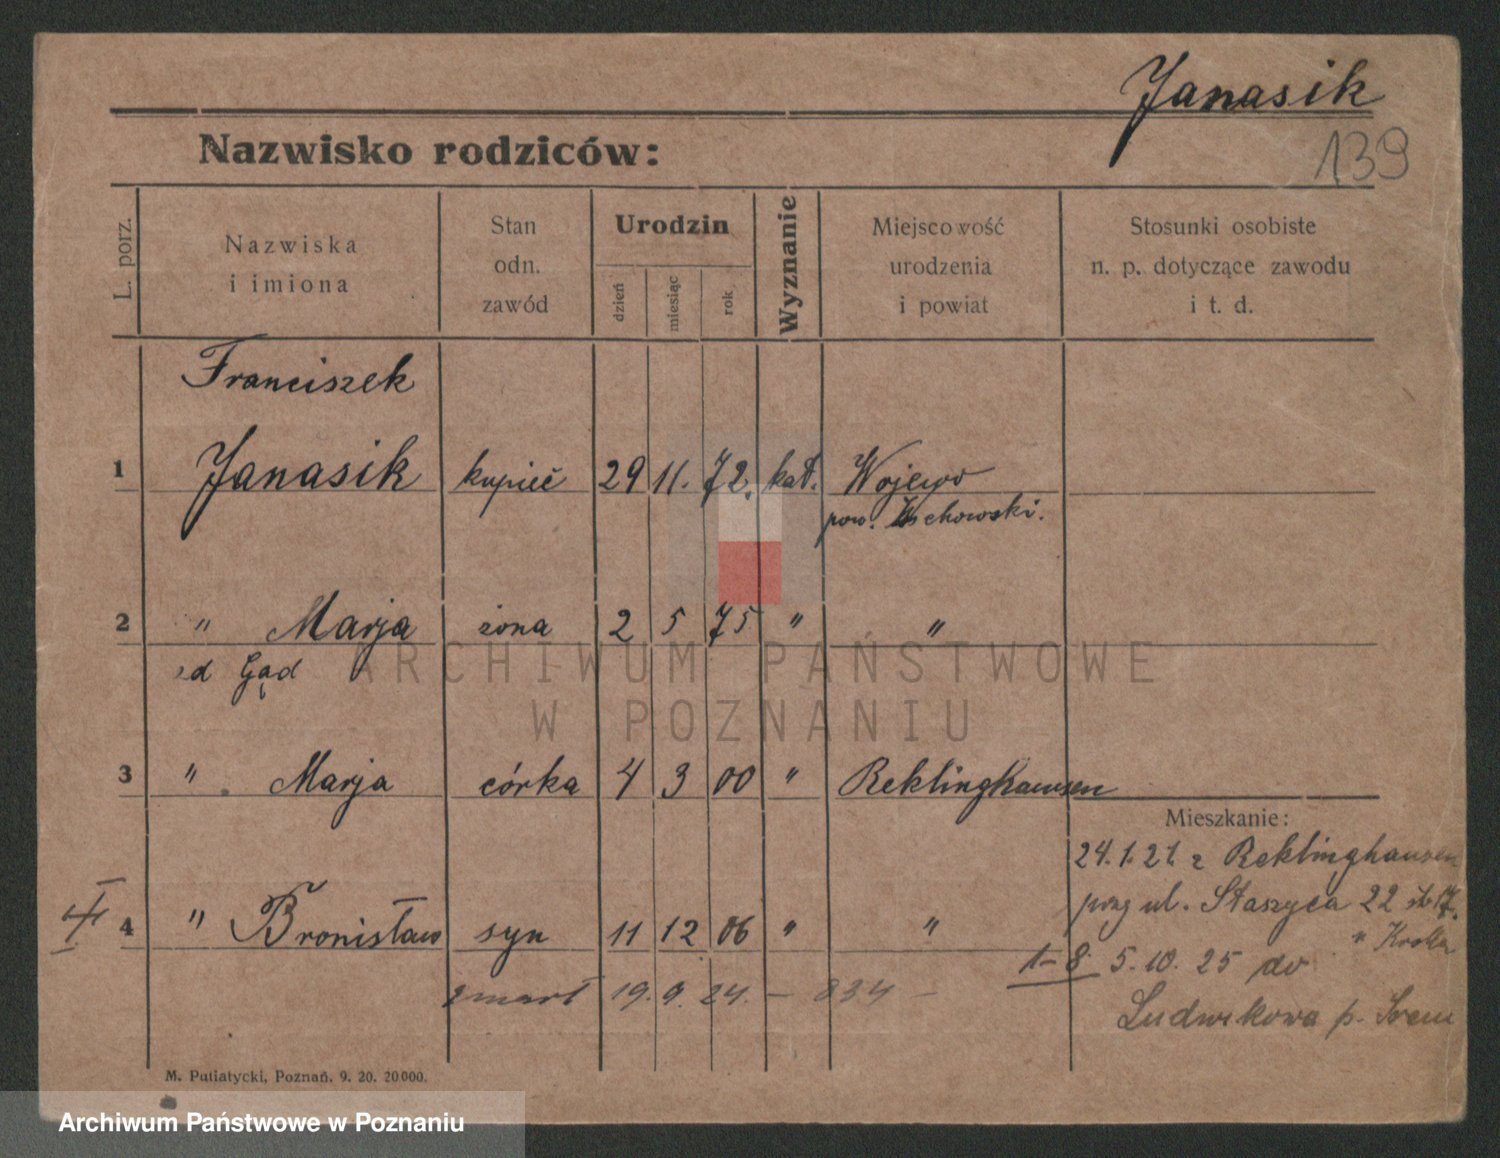 Janasik
139
Nazwisko rodziców:
L. porz.
Nazwiska
i imiona
Stan
odn.
zawód
Urodzin
dzień
miesiąc
rok
Wyznanie
Miejscowość
urodzenia
i powiat
Stosunki osobiste
n. p. dotyczące zawodu
i t. d.
Franciszek
1 Janasik kupiec 29 11. 72. kat. Wojewo
pow. Wschowski.
2 " Marja żona 2 5 75 " "
od Gąd
3 " Marja córka 4 3 00 " Reklinghausen
Mieszkanie:
24.1.21. z Reklinghausen
przy ul. Staszyca 22
4 " Bronisław syn 11 12 06 " "
" Krolla
1-8 5.10.25 do
zmarł 19.9.24. – 834 –
Ludwikowa p. Śrem
M. Putiatycki, Poznań. 9. 20. 20000.
ARCHIWUM PAŃSTWOWE
W POZNANIU
Archiwum Państwowe w Poznaniu